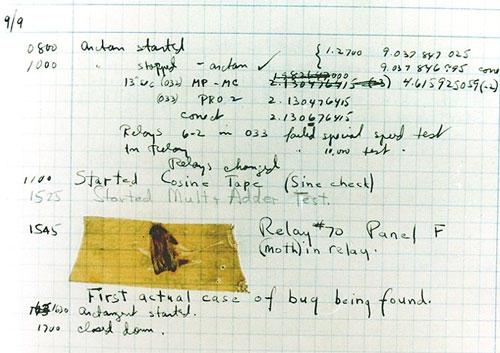 9/9
0800 Antan started
1000 " stopped - antan ✓ { 1.2700 9.037 847 025
9.037 846 995
13"uc (032) MP-MC 2.130476415 4.615925059(-2)
(033) PRO 2 2.130476415
2.130676415
Relays 6-2 in 033 failed special speed test
In Relay " 10,000 test.
Relays changed
1100 Started Cosine Tape (Sine check)
1525 Started Mult+Adder Test.
1545 Relay #70 Panel F
(Moth) in relay.
First actual case of bug being found.
1630 antangent started.
1700 closed down.